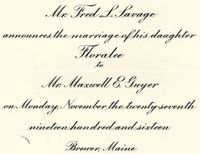 Mr. Fred L. Savage
announces the marriage of his daughter
Floralee
to
Mr. Maxwell E. Guyer
on Monday, November, the twenty-seventh
nineteen hundred and sixteen
Brewer, Maine